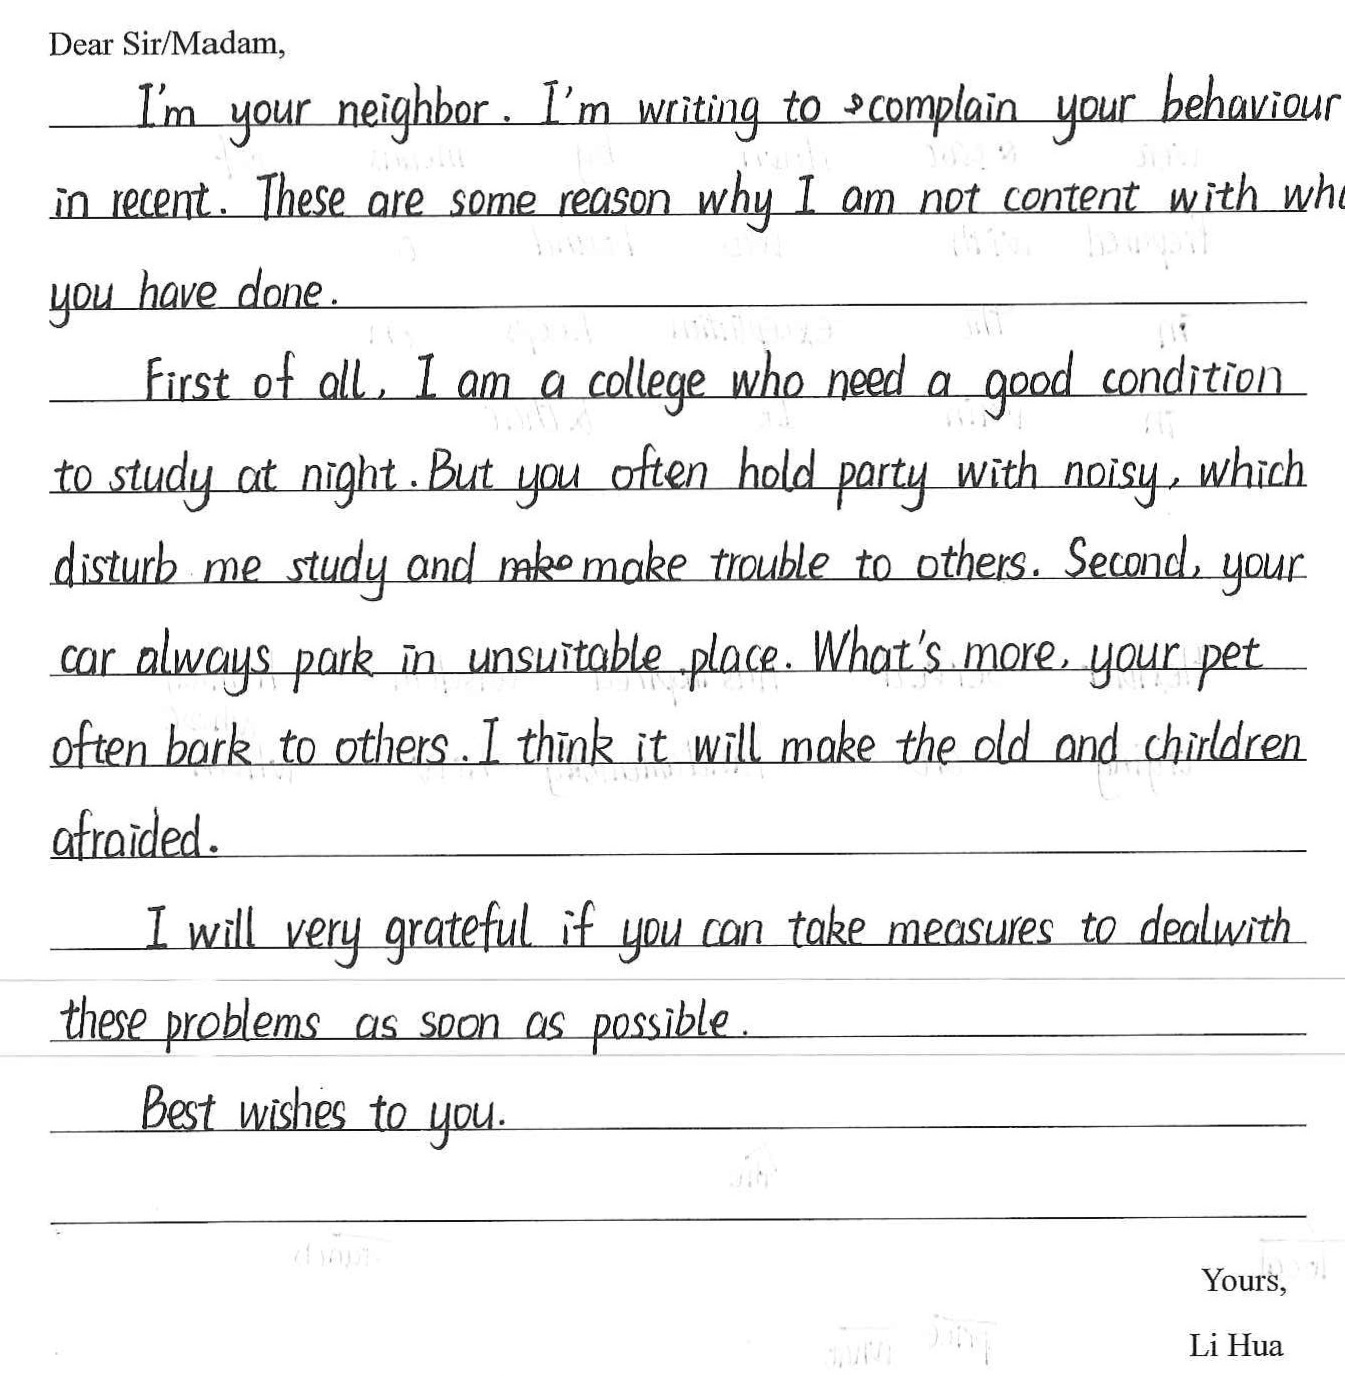 Dear Sir/Madam,
I'm your neighbor. I'm writing to complain your behaviour
in recent. These are some reason why I am not content with
you have done.
First of all, I am a college who need a good condition
to study at night. But you often hold party with noisy, which
disturb me study and make trouble to others. Second, your
car always park in unsuitable place. What's more, your pet
often bark to others. I think it will make the old and chirldren
afraided.
I will very grateful if you can take measures to dealwith
these problems as soon as possible.
Best wishes to you.
Yours,
Li Hua